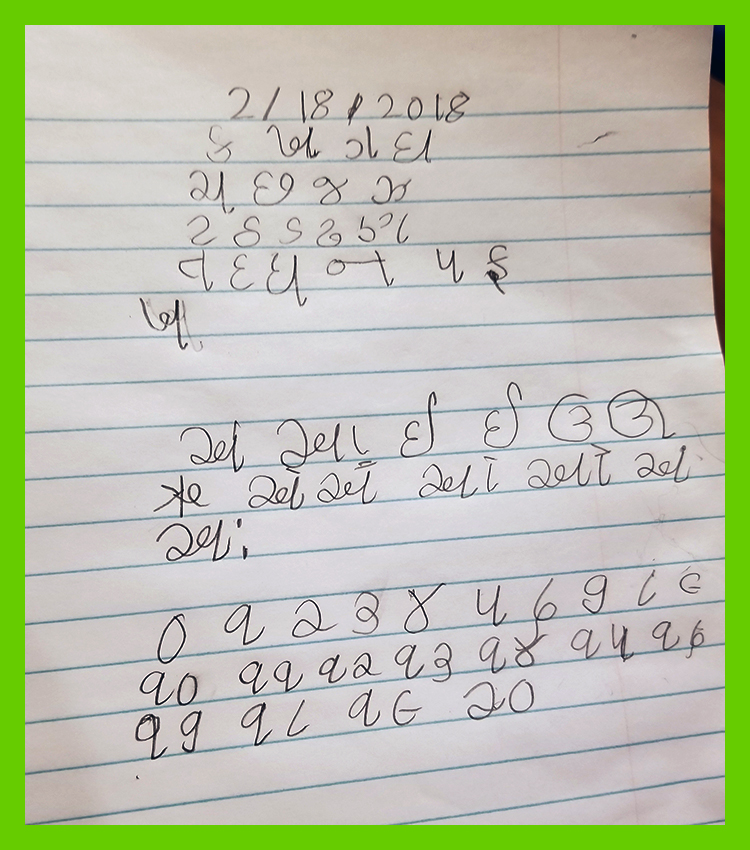 2/18/2018
ક ખ ગ ઘ
ચ છ જ ઝ
ટ ઠ ડ ઢ ણ
ત દ ધ ન પ ફ
અ આ ઇ ઈ ઉ ઊ
ઋ એ ઐ ઓ ઔ અં
અઃ
૦ ૧ ૨ ૩ ૪ ૫ ૬ ૭ ૮ ૯
૧૦ ૧૧ ૧૨ ૧૩ ૧૪ ૧૫ ૧૬
૧૭ ૧૮ ૧૯ ૨૦